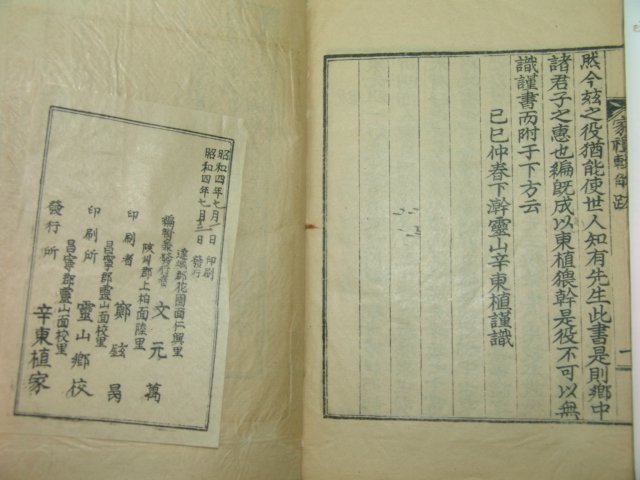 然今玆之役猶能使世人知有先生此書是則鄉中
諸君子之惠也編旣成以東植猥幹是役不可以無
識謹書而附于下方云
己巳仲春下澣靈山辛東植謹識
家禮輯解跋
昭和四年七月一日印刷
昭和四年七月三日發行
達城郡花園面仁興里
編輯兼發行者 文元萬
陜川郡上栢面陸里
印刷者 鄭鉉
昌寧郡靈山面校里
印刷所 靈山鄉校
昌寧郡靈山面校里
發行所 辛東植家